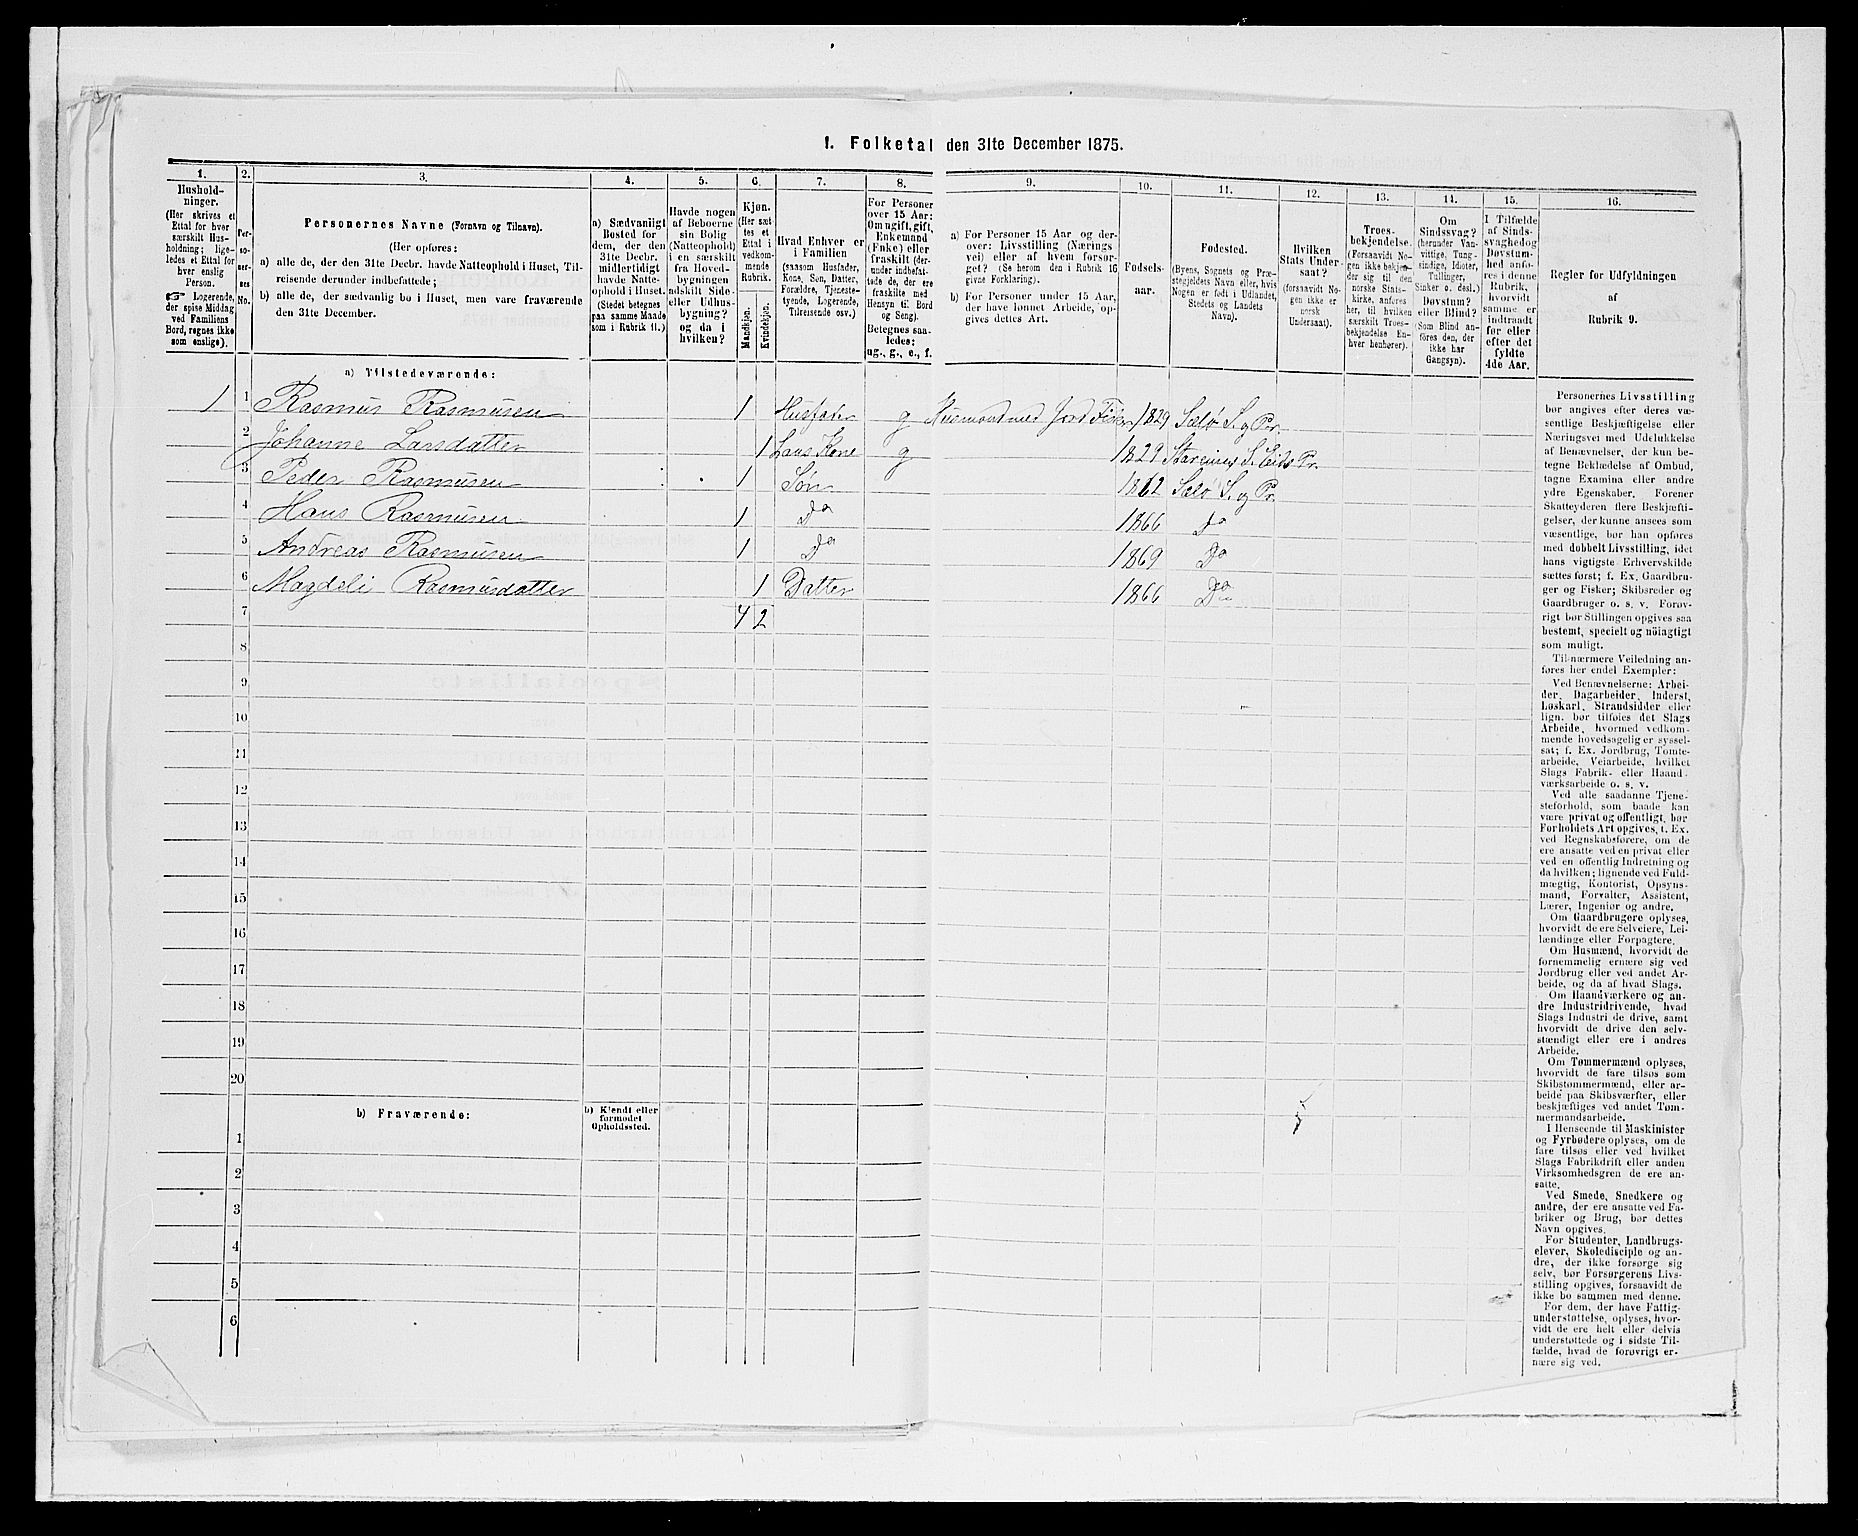 1. Folketal den 31te December 1875.
1. 2. 3. 4. 5. 6. 7. 8. 9. 10. 11. 12. 13. 14. 15. 16.
Hushold-
ninger.
(Her skrives et
Ettal for hver
særskilt Hus-
holdning; lige-
ledes et Ettal for
hver enslig
Person.
☞ Logerende,
der spise Middag
ved Familiens
Bord, regnes ikke
som enslige).
Per-
so-
ner-
nes
No.
Personernes Navne (Fornavn og Tilnavn).
(Her opføres:
a) alle de, der den 31te Decbr. havde Natteophold i Huset, Til-
reisende derunder indbefattede;
b) alle de, der sædvanlig bo i Huset, men vare fraværende
den 31te December.
a) Sædvanligt
Bosted for
dem, der den
31te Decbr.
midlertidigt
havde Natte-
ophold i Huset.
(Stedet betegnes
paa samme Maade
som i Rubrik 11.)
Havde nogen
af Beboerne
sin Bolig
(Natteophold)
i en særskilt
fra Hoved-
bygningen
adskilt Side-
eller Udhus-
bygning?
og da i
hvilken?
Kjøn.
(Her sæt-
tes et
Ettal i
vedkom-
mende
Rubrik.
Mandkjøn.
Kvindekjøn.
Hvad Enhver er
i Familien
(saasom Husfader,
Kone, Søn, Datter,
Forældre, Tjeneste-
tyende, Logerende,
Tilreisende osv.)
For Personer
over 15 Aar:
Om ugift, gift,
Enkemand
(Enke) eller
fraskilt (der-
under indbefat-
tede de, der ere
fraskilte med
Hensyn til Bord
og Seng).
Betegnes saa-
ledes:
ug., g., e., f.
a) For Personer 15 Aar og der-
over: Livsstilling (Nærings-
vei) eller af hvem forsør-
get? (Se herom den i Rubrik 16
givne Forklaring).
b) For Personer under 15 Aar,
der have lønnet Arbeide, op-
gives dettes Art.
Fødsels-
aar.
Fødested.
(Byens, Sognets og Præ-
stegjeldets Navn eller, hvis
Nogen er født i Udlandet,
Stedets og Landets
Navn).
Hvilken
Stats Under-
saat?
(forsaavidt No-
gen ikke er
norsk
Undersaat).
Troes-
bekjendelse.
(Forsaavidt No-
gen ikke bekjen-
der sig til den
norske Stats-
kirke, anføres
her, til hvilken
særskilt Troes-
bekjendelse En-
hver henhører).
Om
Sindssvag?
(herunder Van-
vittige, Tung-
sindige, Idioter,
Tullinger,
Sinker o. desl.)
Døvstum?
eller Blind?
(Som Blind an-
føres den, der
ikke har
Gangsyn).
I Tilfælde
af Sinds-
svaghed og
Døvstum-
hed anfø-
res i denne
Rubrik,
hvorvidt
samme er
indtraadt
før eller
efter det
fyldte
4de Aar.
Regler for Udfyldningen
af
Rubrik 9.
a) Tilstedeværende:
1 1 Rasmus Rasmusen 1 Husfader g Huusmand med Jord Fisker 1829 Sælø S. og Pr.
2 Johanne Larsdatter 1 Hans Kone g 1829 S. Eids Pr.
3 Peder Rasmusen 1 Søn 1862 Sælø S. og Pr.
4 Hans Rasmusen 1 Do 1866 Do
5 Andreas Rasmusen 1 Do 1869 Do
6 Magdeli Rasmusdatter 1 Datter 1866 Do
7 4 2
8
9
10
11
12
13
14
15
16
17
18
19
20
b) Fraværende:
b) Kjendt eller
formodet
Opholdssted.
1
2
3
4
5
6
Personernes Livsstilling
bør angives efter deres væ-
sentlige Beskjæftigelse eller
Næringsvei med Udelukkelse
af Benævnelser, der kun be-
tegne Beklædelse af Ombud,
tagne Examina eller andre
ydre Egenskaber. Forener
Skatteyderen flere Beskjæfti-
gelser, der kunne ansees som
væsentlige, bør han opføres
med dobbelt Livsstilling, idet
hans vigtigste Erhvervskilde
sættes først; f. Ex. Gaardbru-
ger og Fisker; Skibsreder og
Gaardbruger o. s. v. Forøv-
rigt bør Stillingen opgives saa
bestemt, specielt og nöiagtigt
som muligt.
Til nærmere Veiledning an-
føres her endel Exempler:
Ved Benævnelserne: Arbei-
der, Dagarbeider, Inderst,
Løskarl, Strandsidder eller
lign. bør tilføies det Slags
Arbeide, hvormed vedkom-
mende hovedsagelig er syssel-
sat; f. Ex. Jordbrug, Tomte-
arbeide, Veiarbeide, hvilket
Slags Fabrik- eller Haand-
værksarbeide o. s. v.
Ved alle saadanne Tjene-
steforhold, som baade kan
være privat og offentligt, bør
Forholdets Art opgives, t. Ex.
ved Regnskabsførere, om de
ere ansatte ved en privat eller
ved en offentlig Indretning og
da hvilken; lignende ved Fuld-
mægtig, Kontorist, Opsyns-
mand, Forvalter, Assistent,
Lærer, Ingeniør og andre.
Om Gaardbrugere oplyses,
hvorvidt de ere Selveiere, Lei-
lændinge eller Forpagtere.
Om Husmænd, hvorvidt de
fornemmelig ernære sig ved
Jordbrug eller ved andet Ar-
beide, og da af hvad Slags.
Om Haandværkere og an-
dre Industridrivende, hvad
Slags Industri de drive, samt
hvorvidt de drive den selv-
stændigt eller ere i andres
Arbeide.
Om Tømmermænd oplyses,
hvorvidt de fare tilsøs som
Skibstømmermænd, eller ar-
beide paa Skibsværfter, eller
beskjæftiges ved andet Tøm-
mermandsarbeide.
I Henseende til Maskinister
og Fyrbødere oplyses, om de
fare tilsøs eller ved hvilket
Slags Fabrikdrift eller anden
Virksomhedsgren de ere an-
satte.
Ved Smede, Snedkere og
andre, der ere ansatte ved Fa-
briker og Brug, bør dettes
Navn opgives.
For Studenter, Landbrugs-
elever, Skoledisciple og an-
dre, der ikke forsørge sig
selv, bør Forsørgerens Livs-
stilling opgives, forsaavidt de
ikke bo sammen med denne.
For dem, der have Fattig-
understøttelse, oplyses, hvor-
vidt de ere helt eller delvis
understøttede og i sidste Til-
fælde, hvad de forøvrigt er-
nære sig ved.